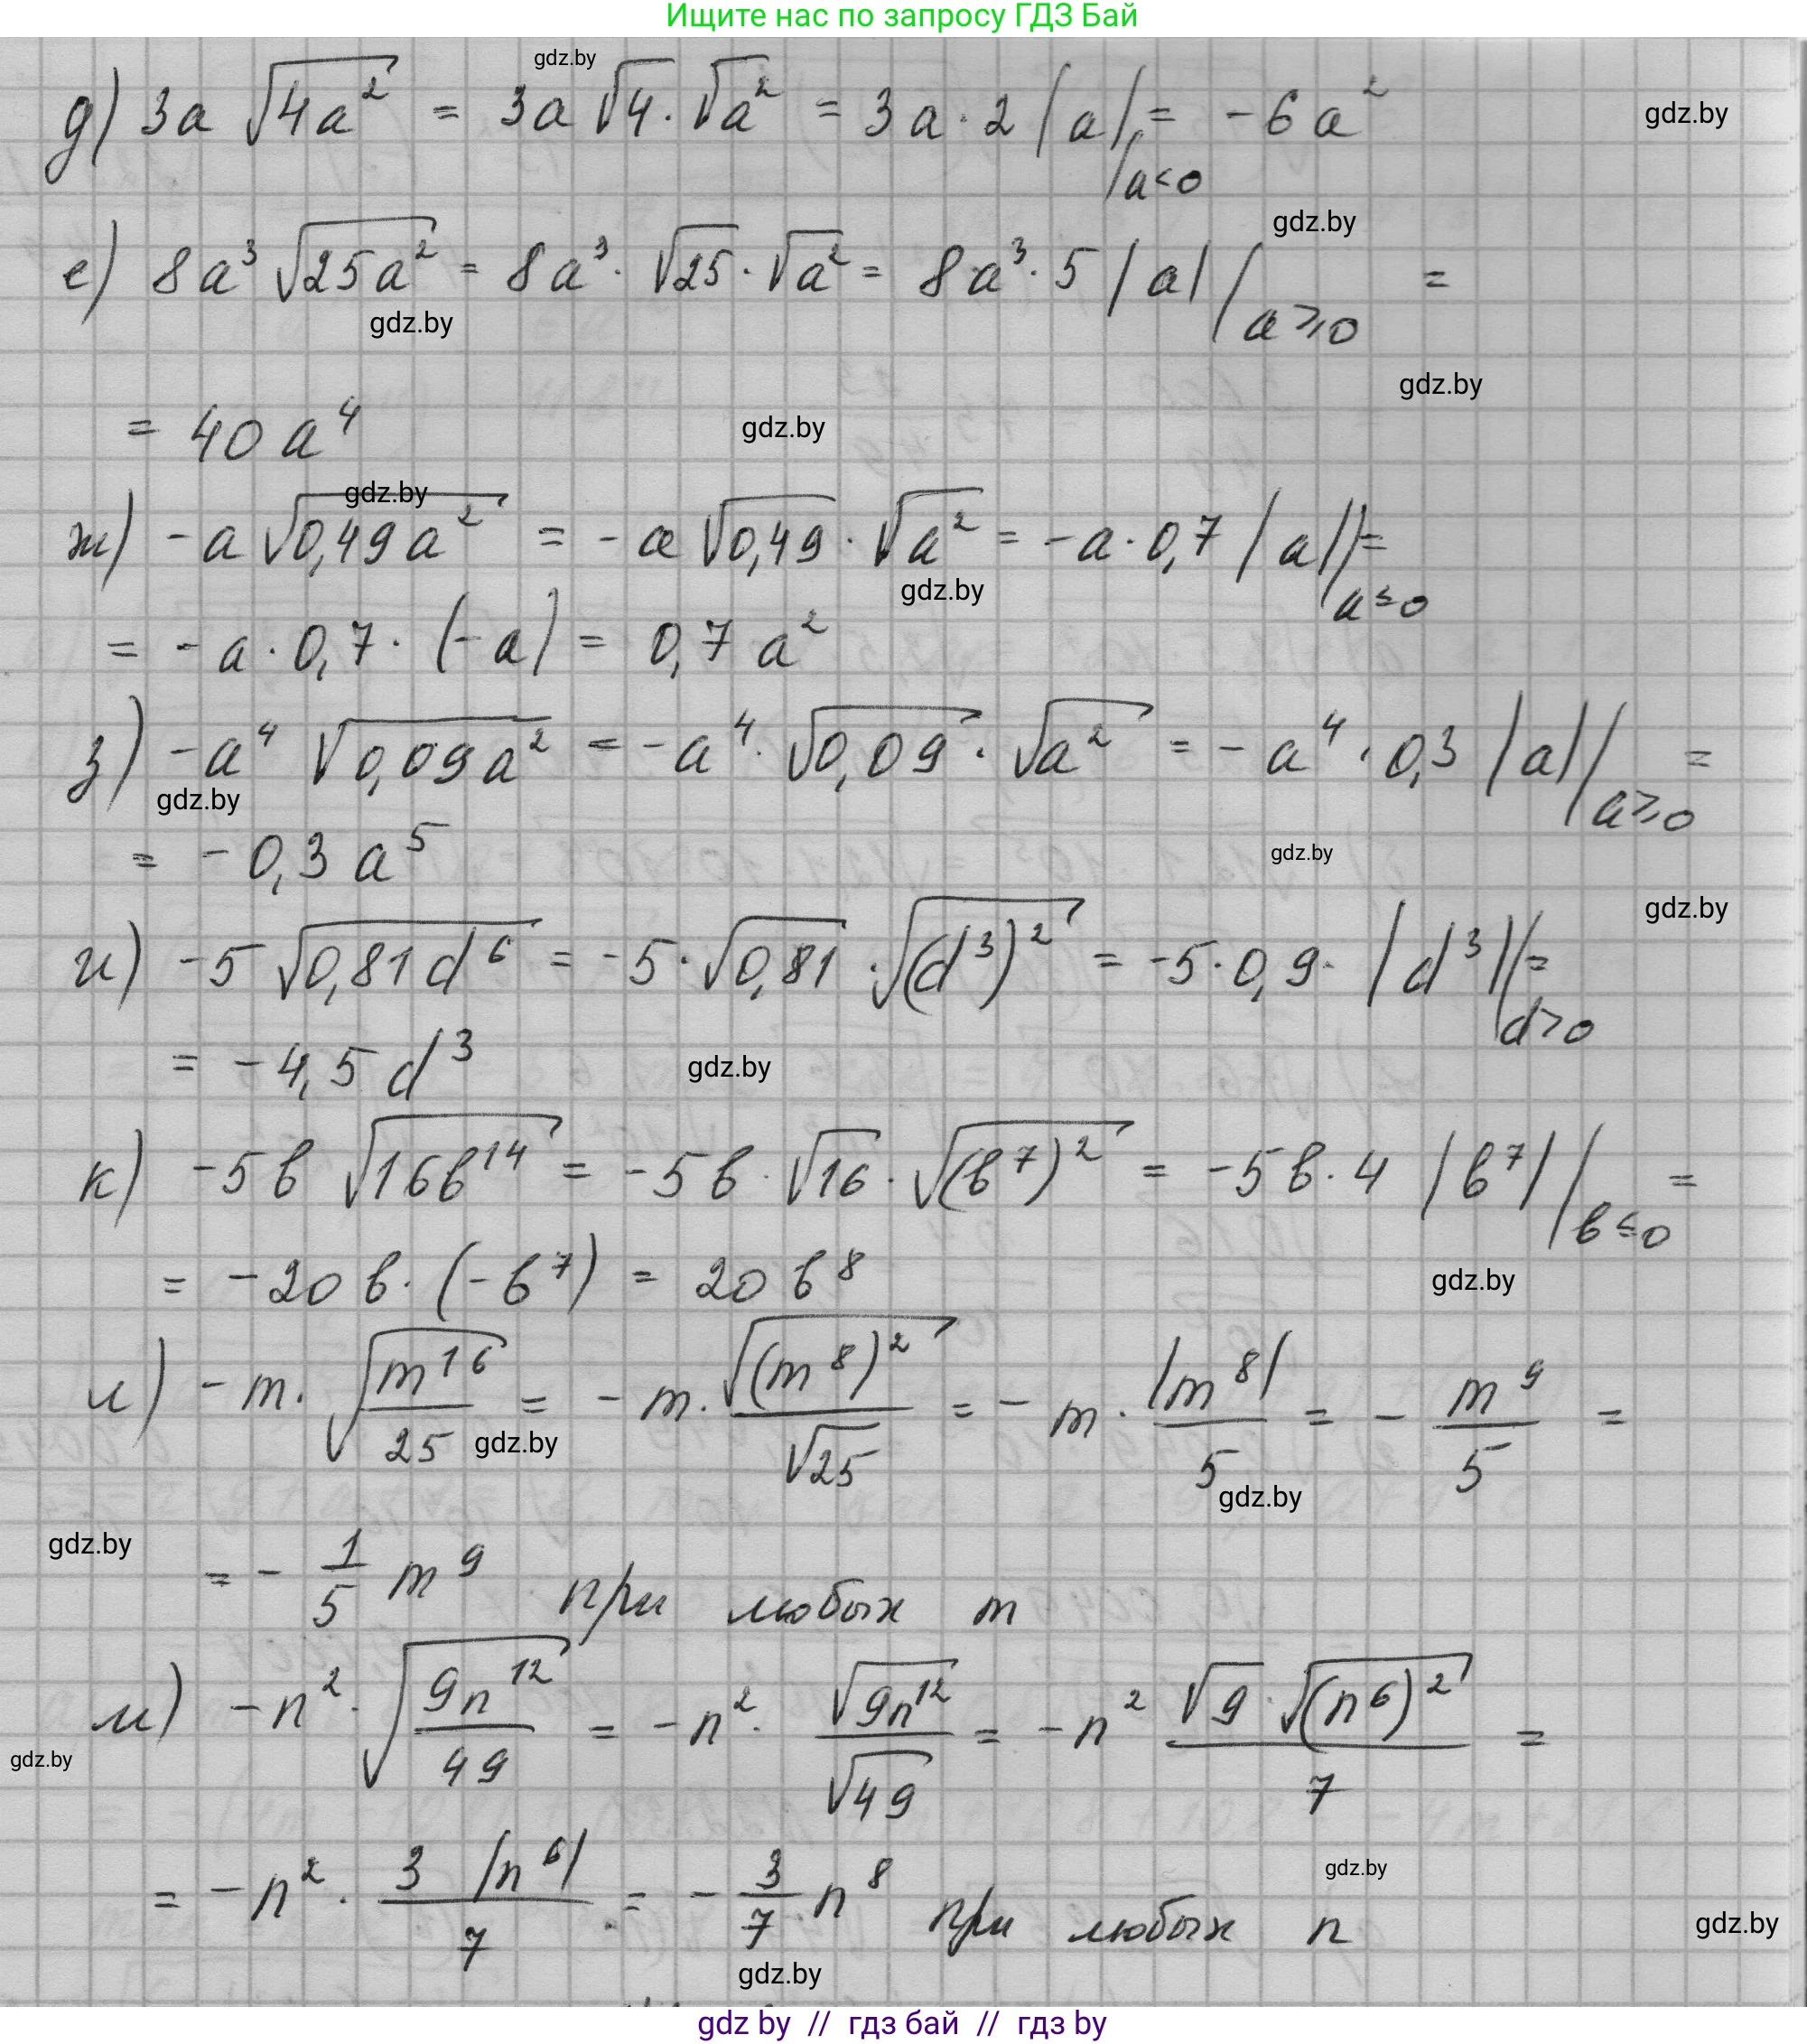 Ищите нас по запросу ГДЗ Бай
gdz.by
д) 3a √(4a²) = 3a √4 · √(a²) = 3a · 2 |a| |a<0 = -6a²
gdz.by
gdz.by
е) 8a³ √(25a²) = 8a³ · √25 · √(a²) = 8a³ · 5 |a| |a⩾0 =
gdz.by
gdz.by
= 40 a⁴
gdz.by
gdz.by
ж) -a √(0,49a²) = -a √(0,49) · √(a²) = -a · 0,7 |a| |a≤0 =
gdz.by
= -a · 0,7 · (-a) = 0,7 a²
з) -a⁴ √(0,09a²) = -a⁴ · √(0,09) · √(a²) = -a⁴ · 0,3 |a| |a⩾0 =
gdz.by
= -0,3 a⁵
gdz.by
gdz.by
и) -5 √(0,81d⁶) = -5 · √(0,81) · √((d³)²) = -5 · 0,9 · |d³| |d>0 =
= -4,5 d³
gdz.by
к) -5в √(16в¹⁴) = -5в · √16 · √((в⁷)²) = -5в · 4 |в⁷| |в≤0 =
= -20в · (-в⁷) = 20в⁸
gdz.by
л) -m · √(m¹⁶/25) = -m · √((m⁸)²)/√25 = -m · |m⁸|/5 = -m⁹/5 =
gdz.by
gdz.by
gdz.by
= -1/5 m⁹ при любых m
м) -n² · √(9n¹²/49) = -n² · √(9n¹²)/√49 = -n² √9 · √((n⁶)²)/7 =
gdz.by
= -n² · 3 |n⁶|/7 = -3/7 n⁸ при любых n
gdz.by
gdz.by
gdz.by
gdz by // гдз бай // гдз by